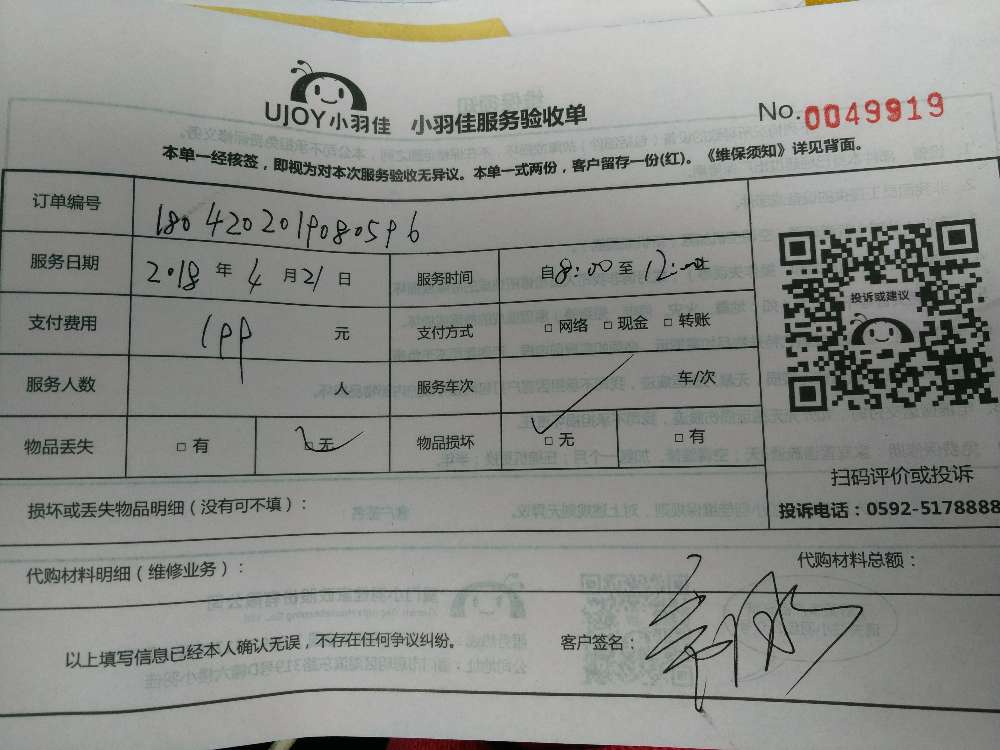 UJOY小羽佳 小羽佳服务验收单 No.0049919
本单一经核签，即视为对本次服务验收无异议。本单一式两份，客户留存一份(红)。《维保须知》详见背面。
订单编号 1804202019080596
服务日期 2018 年 4 月 21 日 服务时间 自 8:00 至 12:00
支付费用 199 元 支付方式 □ 网络 □ 现金 □ 转账
服务人数 人 服务车次 车/次
物品丢失 □ 有 □ 无 物品损坏 □ 无 □ 有
投诉或建议
扫码评价或投诉
投诉电话：0592-5178888
损坏或丢失物品明细（没有可不填）：
代购材料明细（维修业务）： 代购材料总额：
以上填写信息已经本人确认无误，不存在任何争议纠纷。 客户签名：